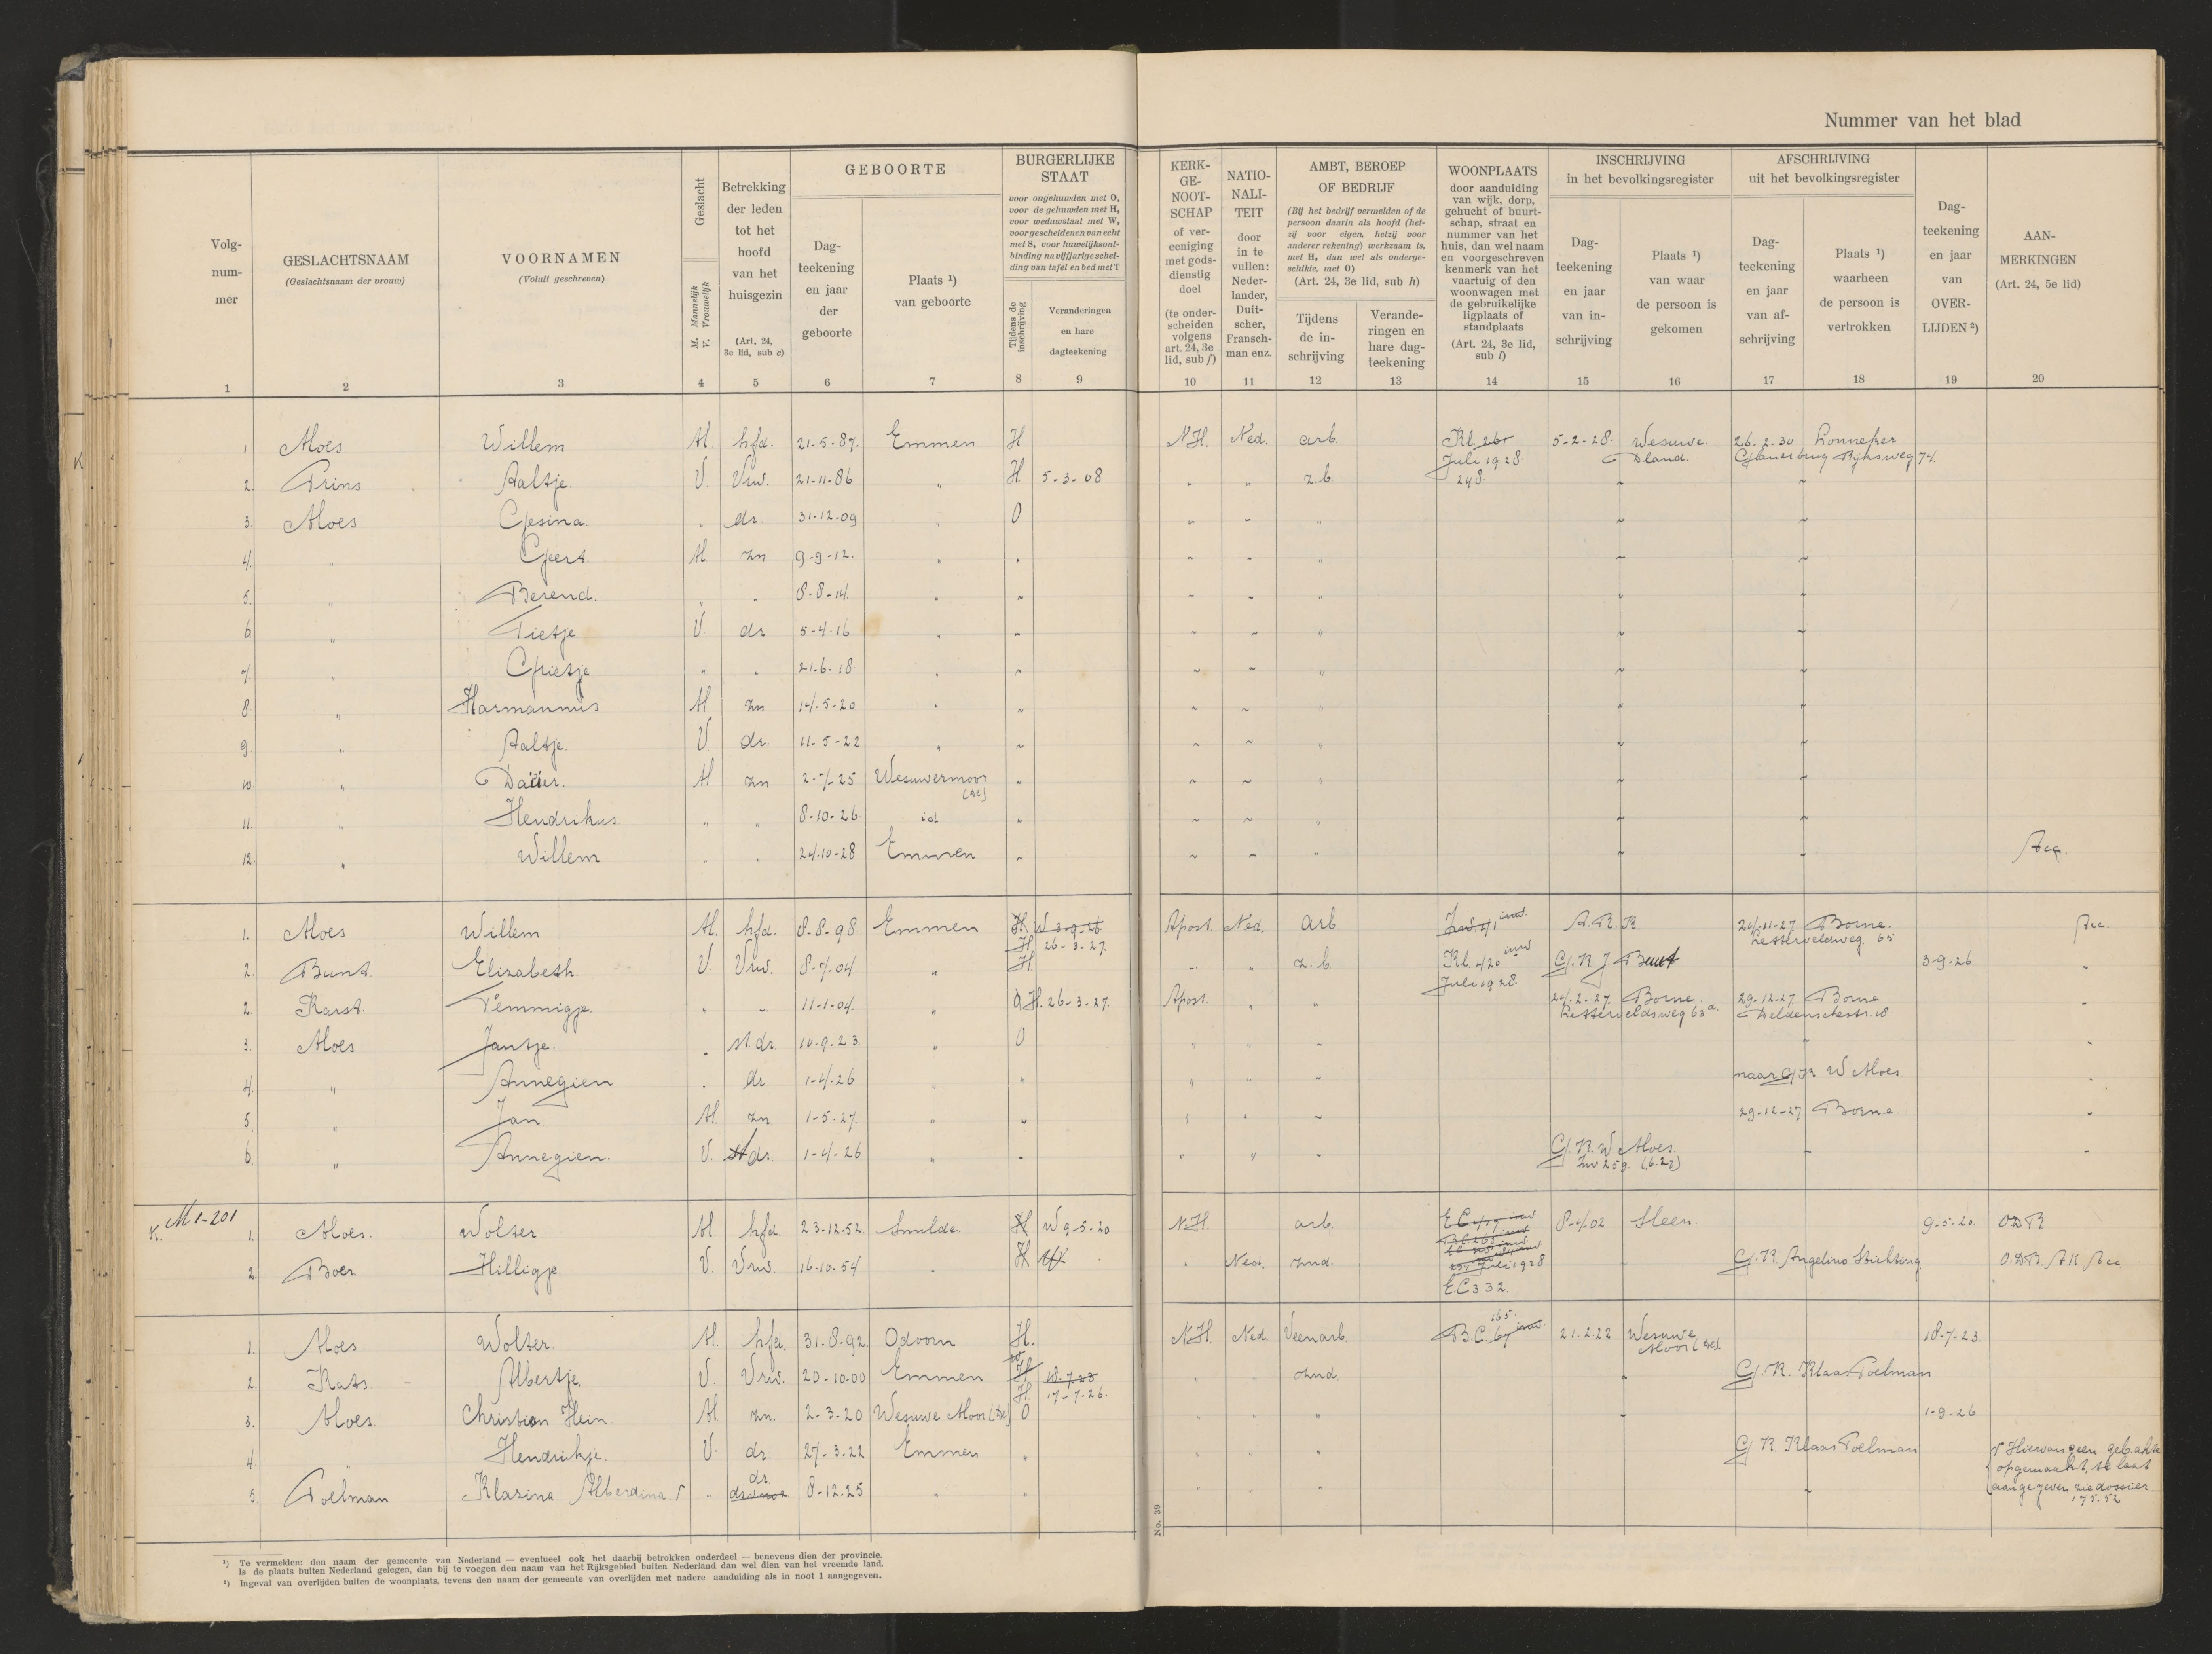 Nummer van het blad
Volgnummer
GESLACHTSNAAM
(Geslachtsnaam der vrouw)
VOORNAMEN
(Voluit geschreven)
Geslacht
M. Mannelijk
V. Vrouwelijk
Betrekking
der leden
tot het
hoofd
van het
huisgezin
(Art. 24,
3e lid, sub c)
GEBOORTE
Dag-
teekening
en jaar
der
geboorte
Plaats ¹)
van geboorte
BURGERLIJKE
STAAT
voor ongehuwden met O,
voor de gehuwden met H,
voor weduwstaat met W,
voor gescheidenen van echt
met S, voor huwelijksont-
binding na vijfjarige schei-
ding van tafel en bed met T
Tijdens de
inschrijving
Veranderingen
en hare
dagteekening
KERK-
GE-
NOOT-
SCHAP
of ver-
eeniging
met gods-
dienstig
doel
(te onder-
scheiden
volgens
art. 24, 3e
lid, sub f)
NATIO-
NALI-
TEIT
door
in te
vullen:
Neder-
lander,
Duit-
scher,
Fransch-
man enz.
AMBT, BEROEP
OF BEDRIJF
(Bij het bedrijf vermelden of de
persoon daarin als hoofd (het-
zij voor eigen, hetzij voor
anderer rekening) werkzaam is,
met H, dan wel als onderge-
schikte, met O)
(Art. 24, 3e lid, sub h)
Tijdens
de in-
schrijving
Verande-
ringen en
hare dag-
teekening
WOONPLAATS
door aanduiding
van wijk, dorp,
gehucht of buurt-
schap, straat en
nummer van het
huis, dan wel naam
en voorgeschreven
kenmerk van het
vaartuig of den
woonwagen met
de gebruikelijke
ligplaats of
standplaats
(Art. 24, 3e lid,
sub i)
INSCHRIJVING
in het bevolkingsregister
Dag-
teekening
en jaar
van in-
schrijving
Plaats ¹)
van waar
de persoon is
gekomen
AFSCHRIJVING
uit het bevolkingsregister
Dag-
teekening
en jaar
van af-
schrijving
Plaats ¹)
waarheen
de persoon is
vertrokken
Dag-
teekening
en jaar
van
OVER-
LIJDEN ²)
AAN-
MERKINGEN
(Art. 24, 5e lid)
1 2 3 4 5 6 7 8 9 10 11 12 13 14 15 16 17 18 19 20
K
1 Moes Willem M. hfd. 21-5-87. Emmen H N.H. Ned. arb. Kl. 261 5-2-28. Wesuwe 26-2-30 Lonneker
Juli 1928. Dland. Glanerbrug Rijksweg 74.
2. Prins Aaltje. V. Vrw. 21-11-86 " H 5-3-08 " " z.b. 248. ~ ~
3. Moes Gesina. " dr. 31-12-09 " O " " " ~ ~
4. " Geert. M zn 9-9-12. " " " " " ~ ~
5. " Berend. " " 8-8-14. " " " " " ~ ~
6. " Tietje V. dr 5-4-16 " " " " " ~ ~
7. " Grietje " " 21-6-18. " " " " " ~ ~
8. " Harmannus M zn 14-5-20 " " " " " ~ ~
9. " Aaltje. V. dr. 11-5-22 " " " " " ~ ~
10. " M zn 2-7-25 Wesuwermoor " " " " ~ ~
11. " Hendrikus " " 8-10-26 id. " " " " ~ ~
12. " Willem " " 24-10-28 Emmen " " " " ~ ~
1. Moes Willem M. hfd. 8-8-98 Emmen H W 3-9-26 Apost. Ned. arb. A.R.K. 24-11-27 Borne.
H 26-3-27. Letterveldweg 65
2. Bunt. Elizabeth. V. Vrw. 8-7-04. " H " " z.b. Kl. 420 G.K. J Bunt 3-9-26 "
Juli 1928.
2. Karst. Temmigje. " " 11-1-04. " O H. 26-3-27. Apost. " " 24-2-27. Borne 29-12-27 Borne "
Letterveldsweg 63a Deldenschestr. 18
3. Moes Jantje. " st. dr. 10-9-23. " O " " " ~ "
4. " Annegien " dr. 1-4-26 " " " " " naar G.K. W Moes "
5. " Jan M. zn. 1-5-27. " " " " " 29-12-27 Borne "
6. " Annegien. V. st dr. 1-4-26 " " " " " G.K. W Moes. ~ "
(6.27)
K. M1-201
1. Moes. Wolter. M. hfd 23-12-52 Smilde. H W 9-5-20 N.H. arb. EC 417 8-4-02 Sleen 9-5-20 ODR
2. Boer Hilligje. V. Vrw. 16-10-54 " H " Ned. znd. Juli 1928 G.K. Angelino Stichting
EC 332.
1. Moes Wolter M. hfd. 31-8-92 Odoorn H. N.H. Ned. Veenarb. B.C. 67 165 21-2-22 Wesuwe 18-7-23.
Moor
2. Kats Albertje. V. Vrw. 20-10-00 Emmen H 18-7-23 " " znd. " G.K. Klaas Poelman
H 17-7-26.
3. Moes. Christian Hein. M. zn. 2-3-20 Wesuwe Moor O " " " " 1-9-26
4. " Hendrikje. V. dr. 27-3-22 Emmen " " " " G.K. Klaas Poelman
5. Poelman Klazina Alberdina. " dr. 8-12-25 " " " " " ~
Hiervan geen geb.akte
opgemaakt, te laat
aangegeven zie dossier.
No. 39
¹) Te vermelden: den naam der gemeente van Nederland — eventueel ook het daarbij betrokken onderdeel — benevens dien der provincie.
Is de plaats buiten Nederland gelegen, dan bij te voegen den naam van het Rijksgebied buiten Nederland dan wel dien van het vreemde land.
²) Ingeval van overlijden buiten de woonplaats, tevens den naam der gemeente van overlijden met nadere aanduiding als in noot 1 aangegeven.